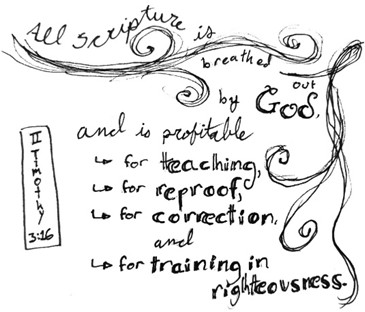 All Scripture is
breathed
out
by God,
and is profitable
↳ for teaching,
↳ for reproof,
↳ for correction,
and
↳ for training in
righteousness.
II Timothy 3:16